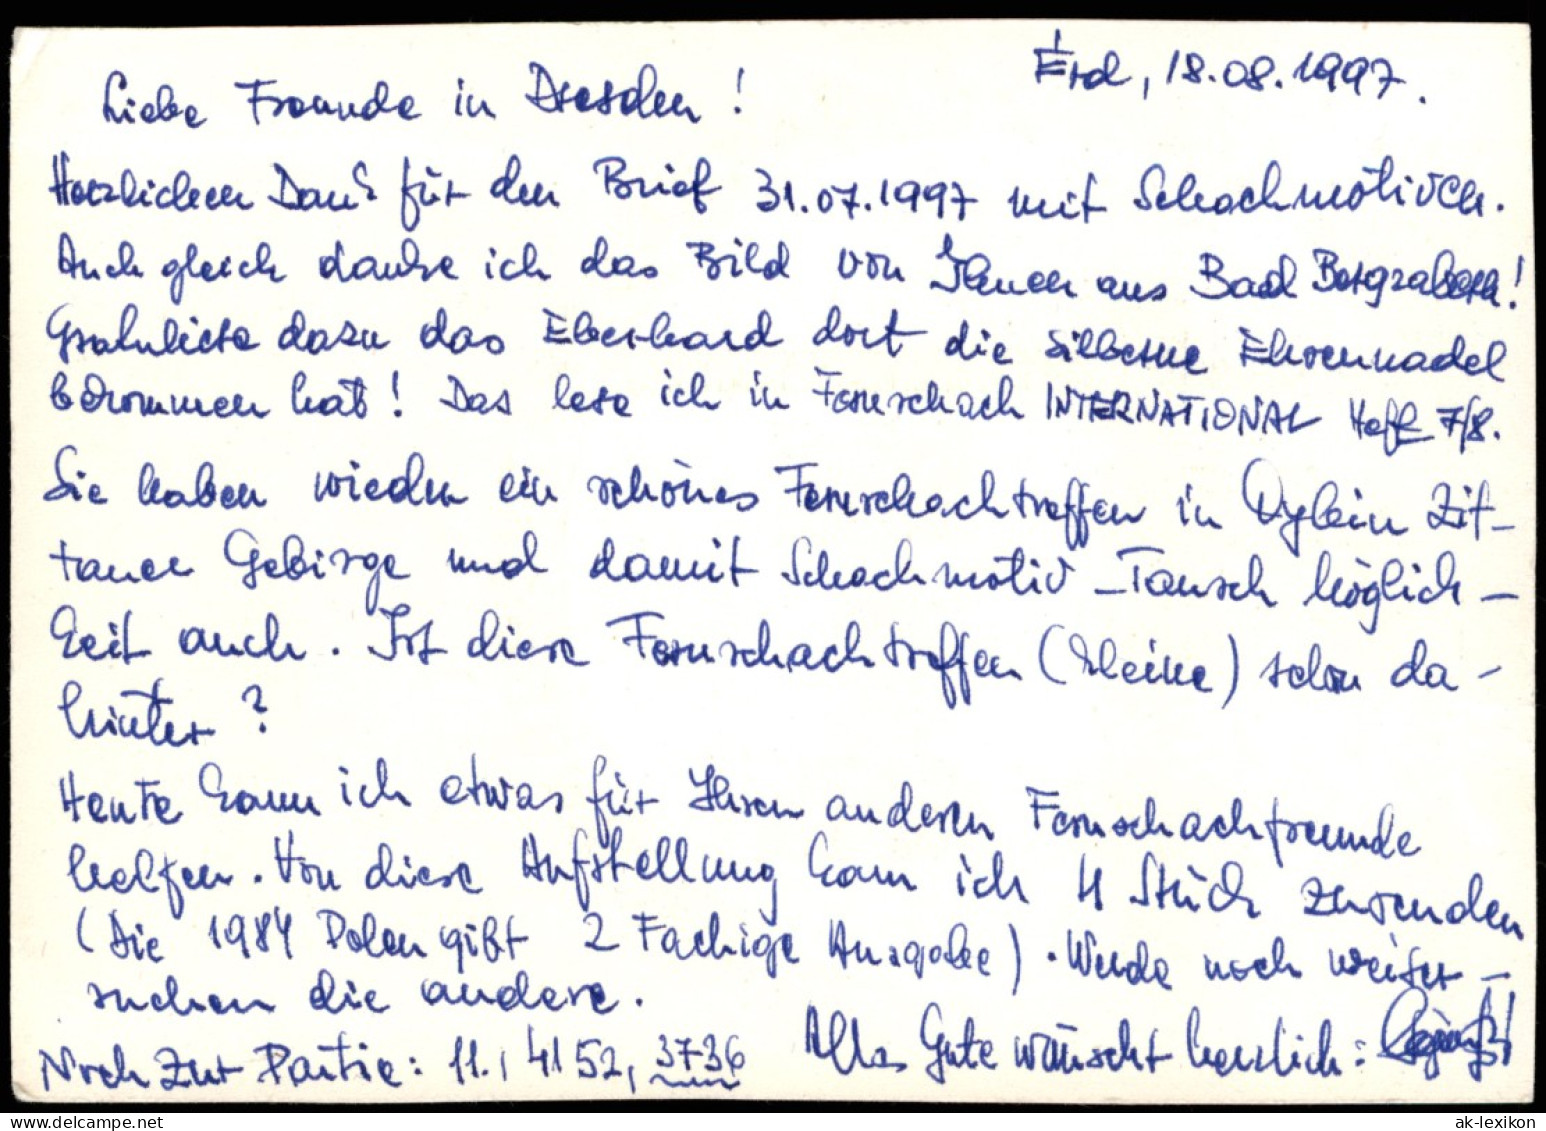 Érd, 18.08.1997.
Liebe Freunde in Dresden!
Herzlichen Dank für den Brief 31.07.1997 mit Schachmotiven.
Auch gleich danke ich das Bild von Ihnen aus Bad Bergzabern!
Gratuliere dazu das Eberhard dort die silberne Ehrennadel
bekommen hat! Das lese ich in Fernschach INTERNATIONAL Heft 7/8.
Sie haben wieder ein schönes Fernschachtreffen in Oybin Zit-
tauer Gebirge und damit Schachmotiv-Tausch möglich-
keit auch. Ist diese Fernschachtreffen (kleine) schon da-
hinter?
Heute kann ich etwas für Ihren anderen Fernschachfreunde
helfen. Von diese Aufstellung kann ich 4 Stück zusenden
(Die 1984 Polen gibt 2 Fachige Ausgabe). Werde noch weiter-
suchen die andere.
Noch zur Partie: 11., 4152, 3736 Alles Gute wünscht herzlich:
ak-lexikon